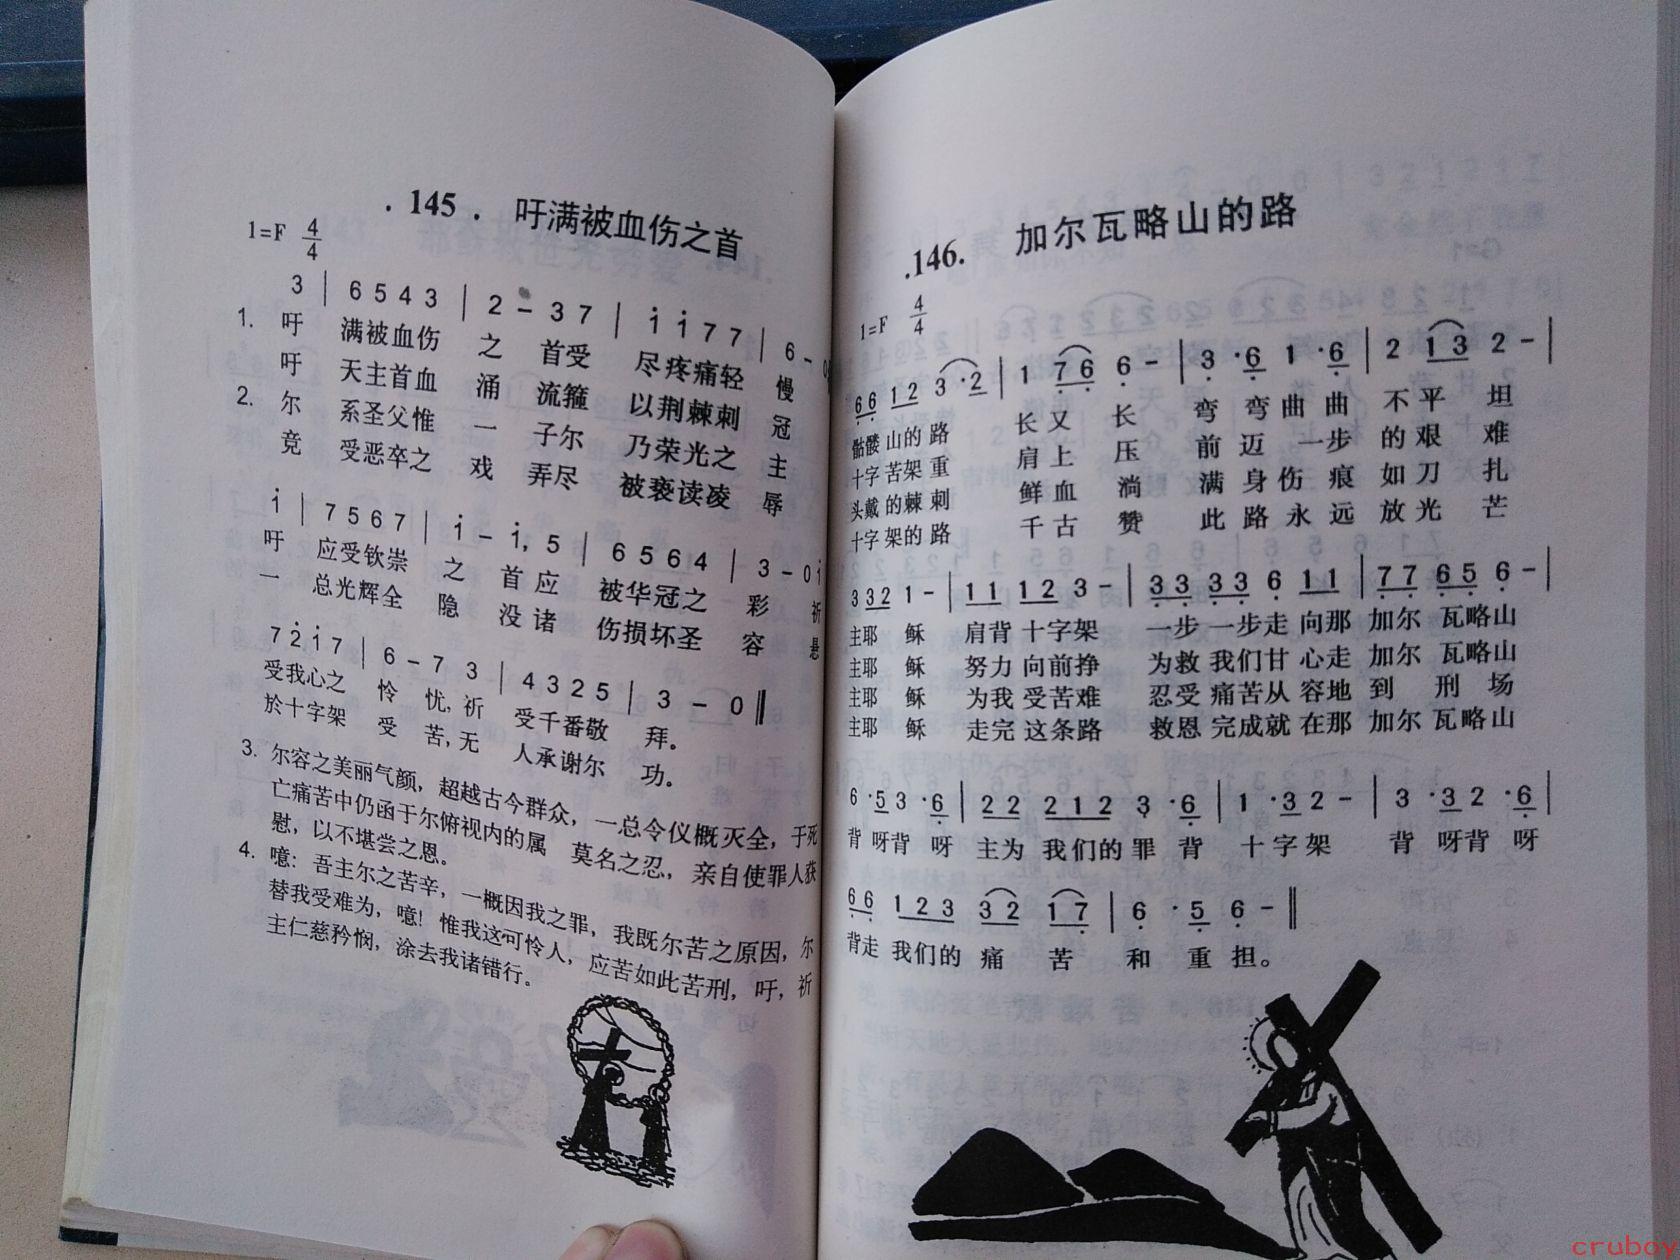 .145. 吁满被血伤之首
1=F 4/4
3 | 6 5 4 3 | 2 – 3 7 | i̇ i̇ 7 7 | 6 – 0
1. 吁 满被血伤 之 首受 尽疼痛轻 慢
吁 天主首血 涌 流箍 以荆棘刺 冠
2. 尔 系圣父惟 一 子尔 乃荣光之 主
竞 受恶卒之 戏 弄尽 被亵读凌 辱
i̇ | 7 5 6 7 | i̇ – i̇, 5 | 6 5 6 4 | 3 – 0 i̇
吁 应受钦崇 之 首应 被华冠之 彩 祈
一 总光辉全 隐 没诸 伤损坏圣 容 悬
7 2̇ i̇ 7 | 6 – 7 3 | 4 3 2 5 | 3 – 0 ‖
受我心之 怜 忧,祈 受千番敬 拜。
於十字架 受 苦,无 人承谢尔 功。
3. 尔容之美丽气颜，超越古今群众，一总令仪概灭全，于死
亡痛苦中仍函于尔俯视内的属 莫名之忍，亲自使罪人获
慰，以不堪尝之恩。
4. 噫：吾主尔之苦辛，一概因我之罪，我既尔苦之原因，尔
替我受难为，噫！惟我这可怜人，应苦如此苦刑，吁，祈
主仁慈矜悯，涂去我诸错行。
.146. 加尔瓦略山的路
1=F 4/4
6̣ 6̣ 1 2 3 ·2 | 1 7̣ 6̣ 6̣ – | 3 ·6̣ 1 ·6̣ | 2 1 3 2 – |
骷髅 山的 路 长 又 长 弯 弯 曲 曲 不 平 坦
十字 苦架 重 肩 上 压 前 迈 一 步 的 艰 难
头戴 的棘 刺 鲜 血 淌 满 身 伤 痕 如 刀 扎
十字 架的 路 千 古 赞 此 路 永 远 放 光 芒
3 3 2 1 – | 1 1 1 2 3 – | 3̣ 3̣ 3̣ 3̣ 6̣ 1 1 | 7̣ 7̣ 6̣ 5̣ 6̣ – |
主耶 稣 肩背 十字架 一步 一步走 向那 加尔 瓦略山
主耶 稣 努力 向前挣 为救 我们甘 心走 加尔 瓦略山
主耶 稣 为我 受苦难 忍受 痛苦从 容地 到 刑 场
主耶 稣 走完 这条路 救恩 完成就 在那 加尔 瓦略山
6 ·5 3 ·6̣ | 2 2 2 1 2 3 ·6̣ | 1 ·3 2 – | 3 ·3 2 ·6̣ |
背 呀背 呀 主为 我们的 罪 背 十 字 架 背 呀背 呀
6̣ 6̣ 1 2 3 3 2 1 7̣ | 6̣ · 5̣ 6̣ – ‖
背走 我们的 痛 苦 和 重 担。
cruboy